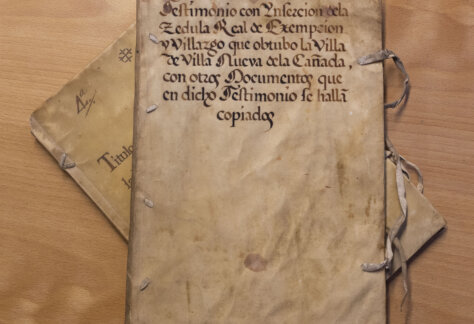 Testimonio con Ynsercion dela
Zedula Real de Exempcion
y Villazgo que obtubo la Villa
de Villa Nueva dela Cañada,
con otros Documentos que
en dicho Testimonio se hallā
copiados
4ª
Titolo